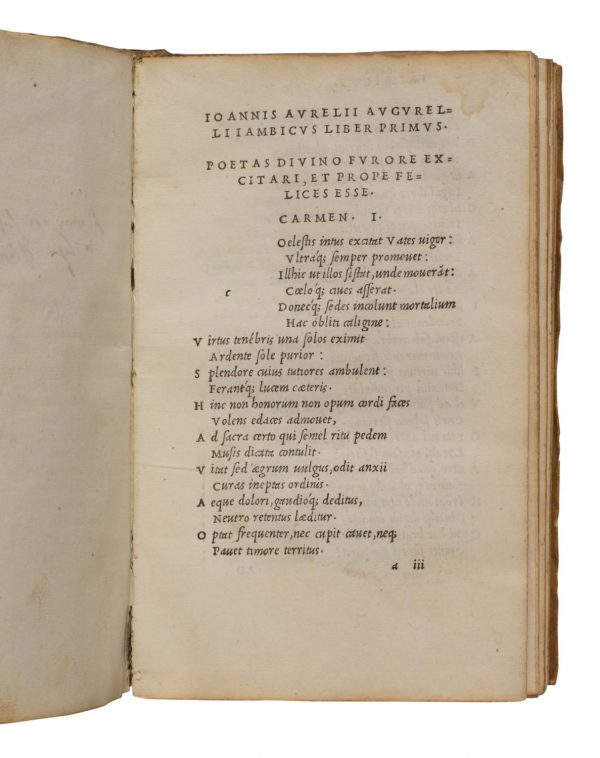 IOANNIS AVRELII AVGVREL=
LI IAMBICVS LIBER PRIMVS.
POETAS DIVINO FVRORE EX=
CITARI, ET PROPE FE=
LICES ESSE.
CARMEN. I.
Oelestis intus excitat Vates uigor:
Vltraq; semper promouet:
Illhic ut illos sistat, unde mouerãt:
c Cœloq; ciues asserat.
Donecq; sedes incolunt mortalium
Hac obliti caligine:
V irtus tenebris una solos eximit
Ardente sole purior:
S plendore cuius tutiores ambulent:
Ferantq; lucem cæteris.
H inc non honorum non opum cordi faces
Volens edaces admouet,
A d sacra certo qui semel ritu pedem
Musis dicata contulit.
V itat sed ægrum uulgus, odit anxii
Curas ineptas ordinis.
A eque dolori, gaudioq; deditus,
Neutro retentus læditur.
O ptat frequenter, nec cupit cauet, neq;
Pauet timore territus.
a iii